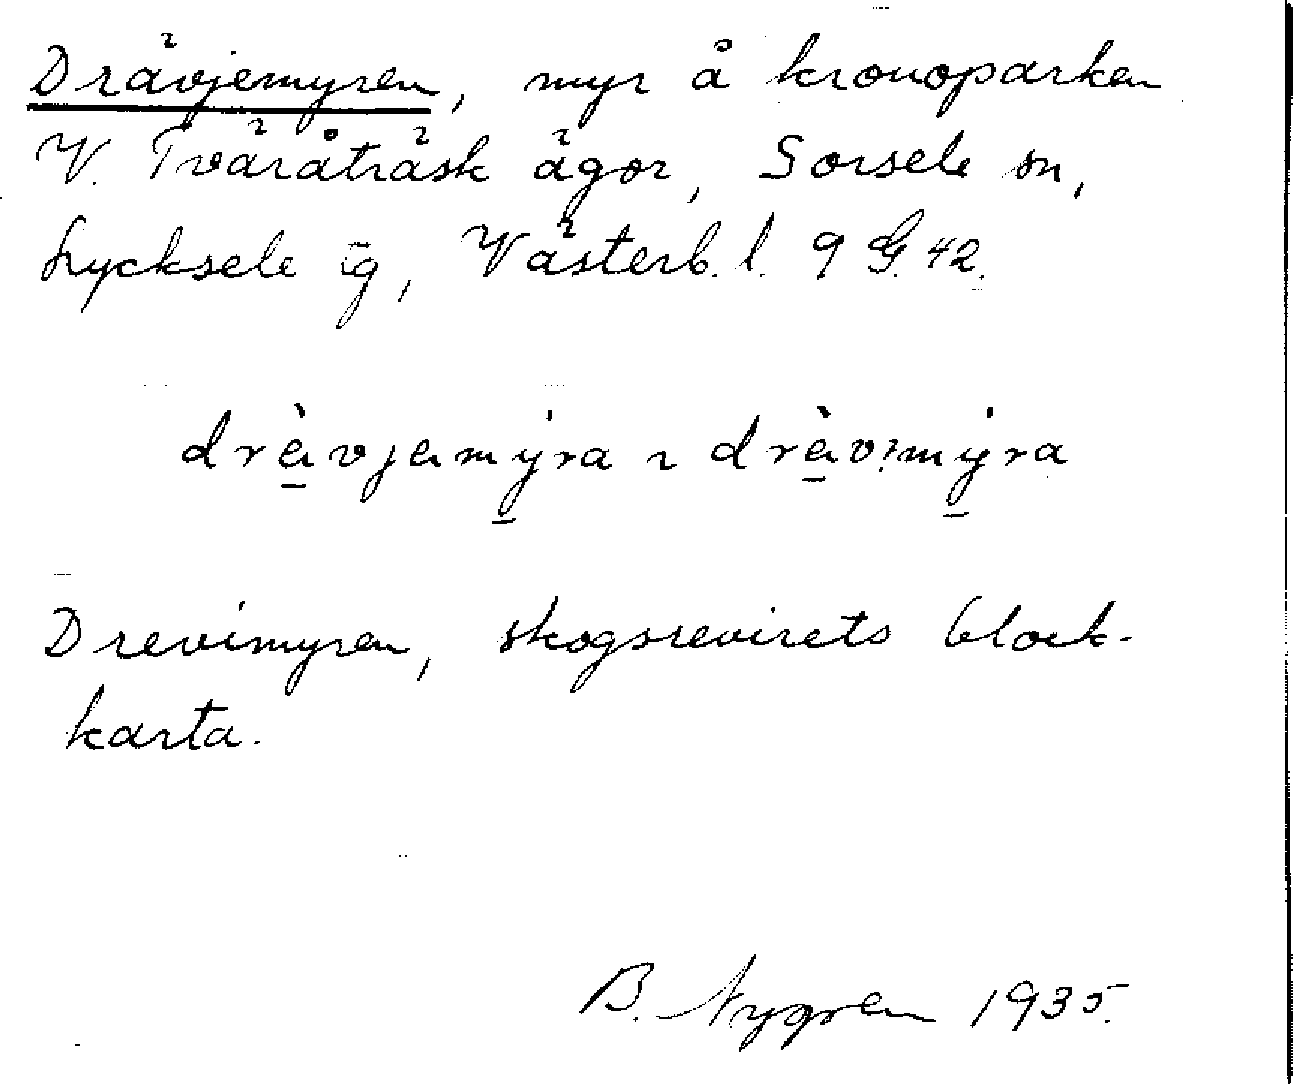 Drävjemyren, myr å kronoparken
V. Tväråträsk ägor, Sorsele sn,
Lycksele tg, Västerb. l. 9 G. 42.
drä̀vjamýra ~ drä̀vimýra
Drevimyren, skogsrevirets block-
karta.
B. Nygren 1935.